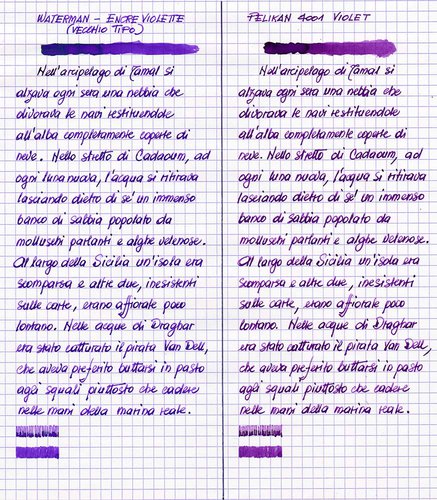 WATERMAN - ENCRE VIOLETTE
(VECCHIO TIPO)
Nell'arcipelago di Tamal si
alzava ogni sera una nebbia che
divorava le navi restituendole
all'alba completamente coperte di
neve. Nello stretto di Cadaoum, ad
ogni luna nuova, l'acqua si ritirava
lasciando dietro di sé un immenso
banco di sabbia popolato da
molluschi parlanti e alghe velenose.
Al largo della Sicilia un'isola era
scomparsa e altre due, inesistenti
sulle carte, erano affiorate poco
lontano. Nelle acque di Dragbar
era stato catturato il pirata Van Dell,
che aveva preferito buttarsi in pasto
agli squali piuttosto che cadere
nelle mani della marina reale.
PELIKAN 4001 VIOLET
Nell'arcipelago di Tamal si
alzava ogni sera una nebbia che
divorava le navi restituendole
all'alba completamente coperte di
neve. Nello stretto di Cadaoum, ad
ogni luna nuova, l'acqua si ritirava
lasciando dietro di sé un immenso
banco di sabbia popolato da
molluschi parlanti e alghe velenose.
Al largo della Sicilia un'isola era
scomparsa e altre due, inesistenti
sulle carte, erano affiorate poco
lontano. Nelle acque di Dragbar
era stato catturato il pirata Van Dell,
che aveva preferito buttarsi in pasto
agli squali piuttosto che cadere
nelle mani della marina reale.